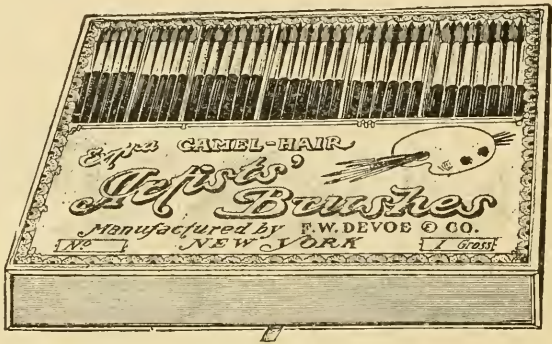 Extra CAMEL-HAIR
Artists'
Brushes
Manufactured by F.W. DEVOE & CO.
Nº NEW YORK 1 Gross